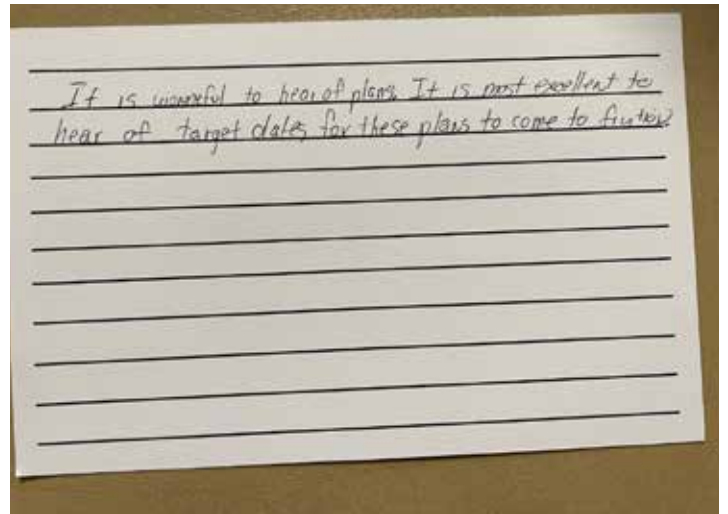 It is wonneful to hear of plans. It is most excellent to
hear of target dates for these plans to come to